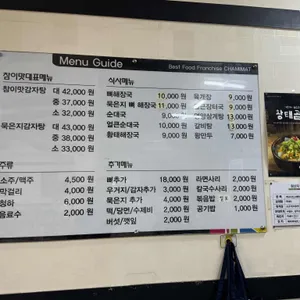 Menu Guide
Best Food Franchise CHAMIMAT
참이맛대표메뉴
참이맛감자탕 대 42,000 원
중 37,000 원
소 32,000 원
묵은지감자탕 대 43,000 원
중 38,000 원
소 33,000 원
식사메뉴
뼈해장국 10,000 원
묵은지 뼈 해장국 11,000 원
순대국 9,000
얼큰순대국
황태해장국
육개장 9,000 원
9,000 원
13,000 원
갈비탕 13,000 원
왕만두 7,000 원
주류
소주/맥주 4,500 원
막걸리 4,000 원
청하 6,000 원
음료수 2,000 원
추가메뉴
뼈추가 18,000 원
우거지/감자추가 3,000 원
묵은지 추가 4,000 원
떡/당면/수제비 2,000 원
버섯/깻잎 2,000 원
라면사리 2,000 원
칼국수사리 2,000 원
볶음밥 2,000 원
공기밥 1,000 원